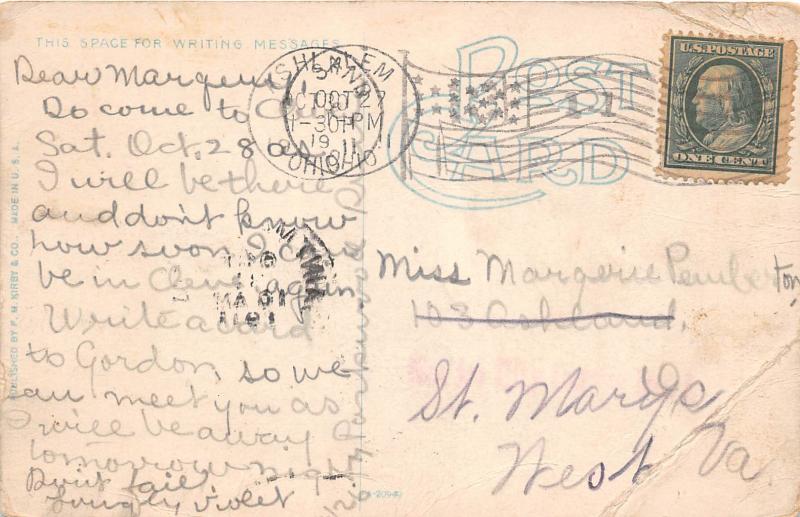 THIS SPACE FOR WRITING MESSAGES
POST
CARD
U.S. POSTAGE
ONE CENT
OCT 27
1-30 PM
1911
OHIO
Dear Margerie
Do come to
Sat. Oct. 28
I will be there
and don't know
how soon I can
be in Cleve again
Write a card
to Gordon, so we
can meet you as
I will be away
tomorrow night
Don't fail
Lovingly Violet
Miss Margerie Pemberton
103 Ashland.
St. Marys
West Va.
PUBLISHED BY F. M. KIRBY & CO. MADE IN U.S.A.